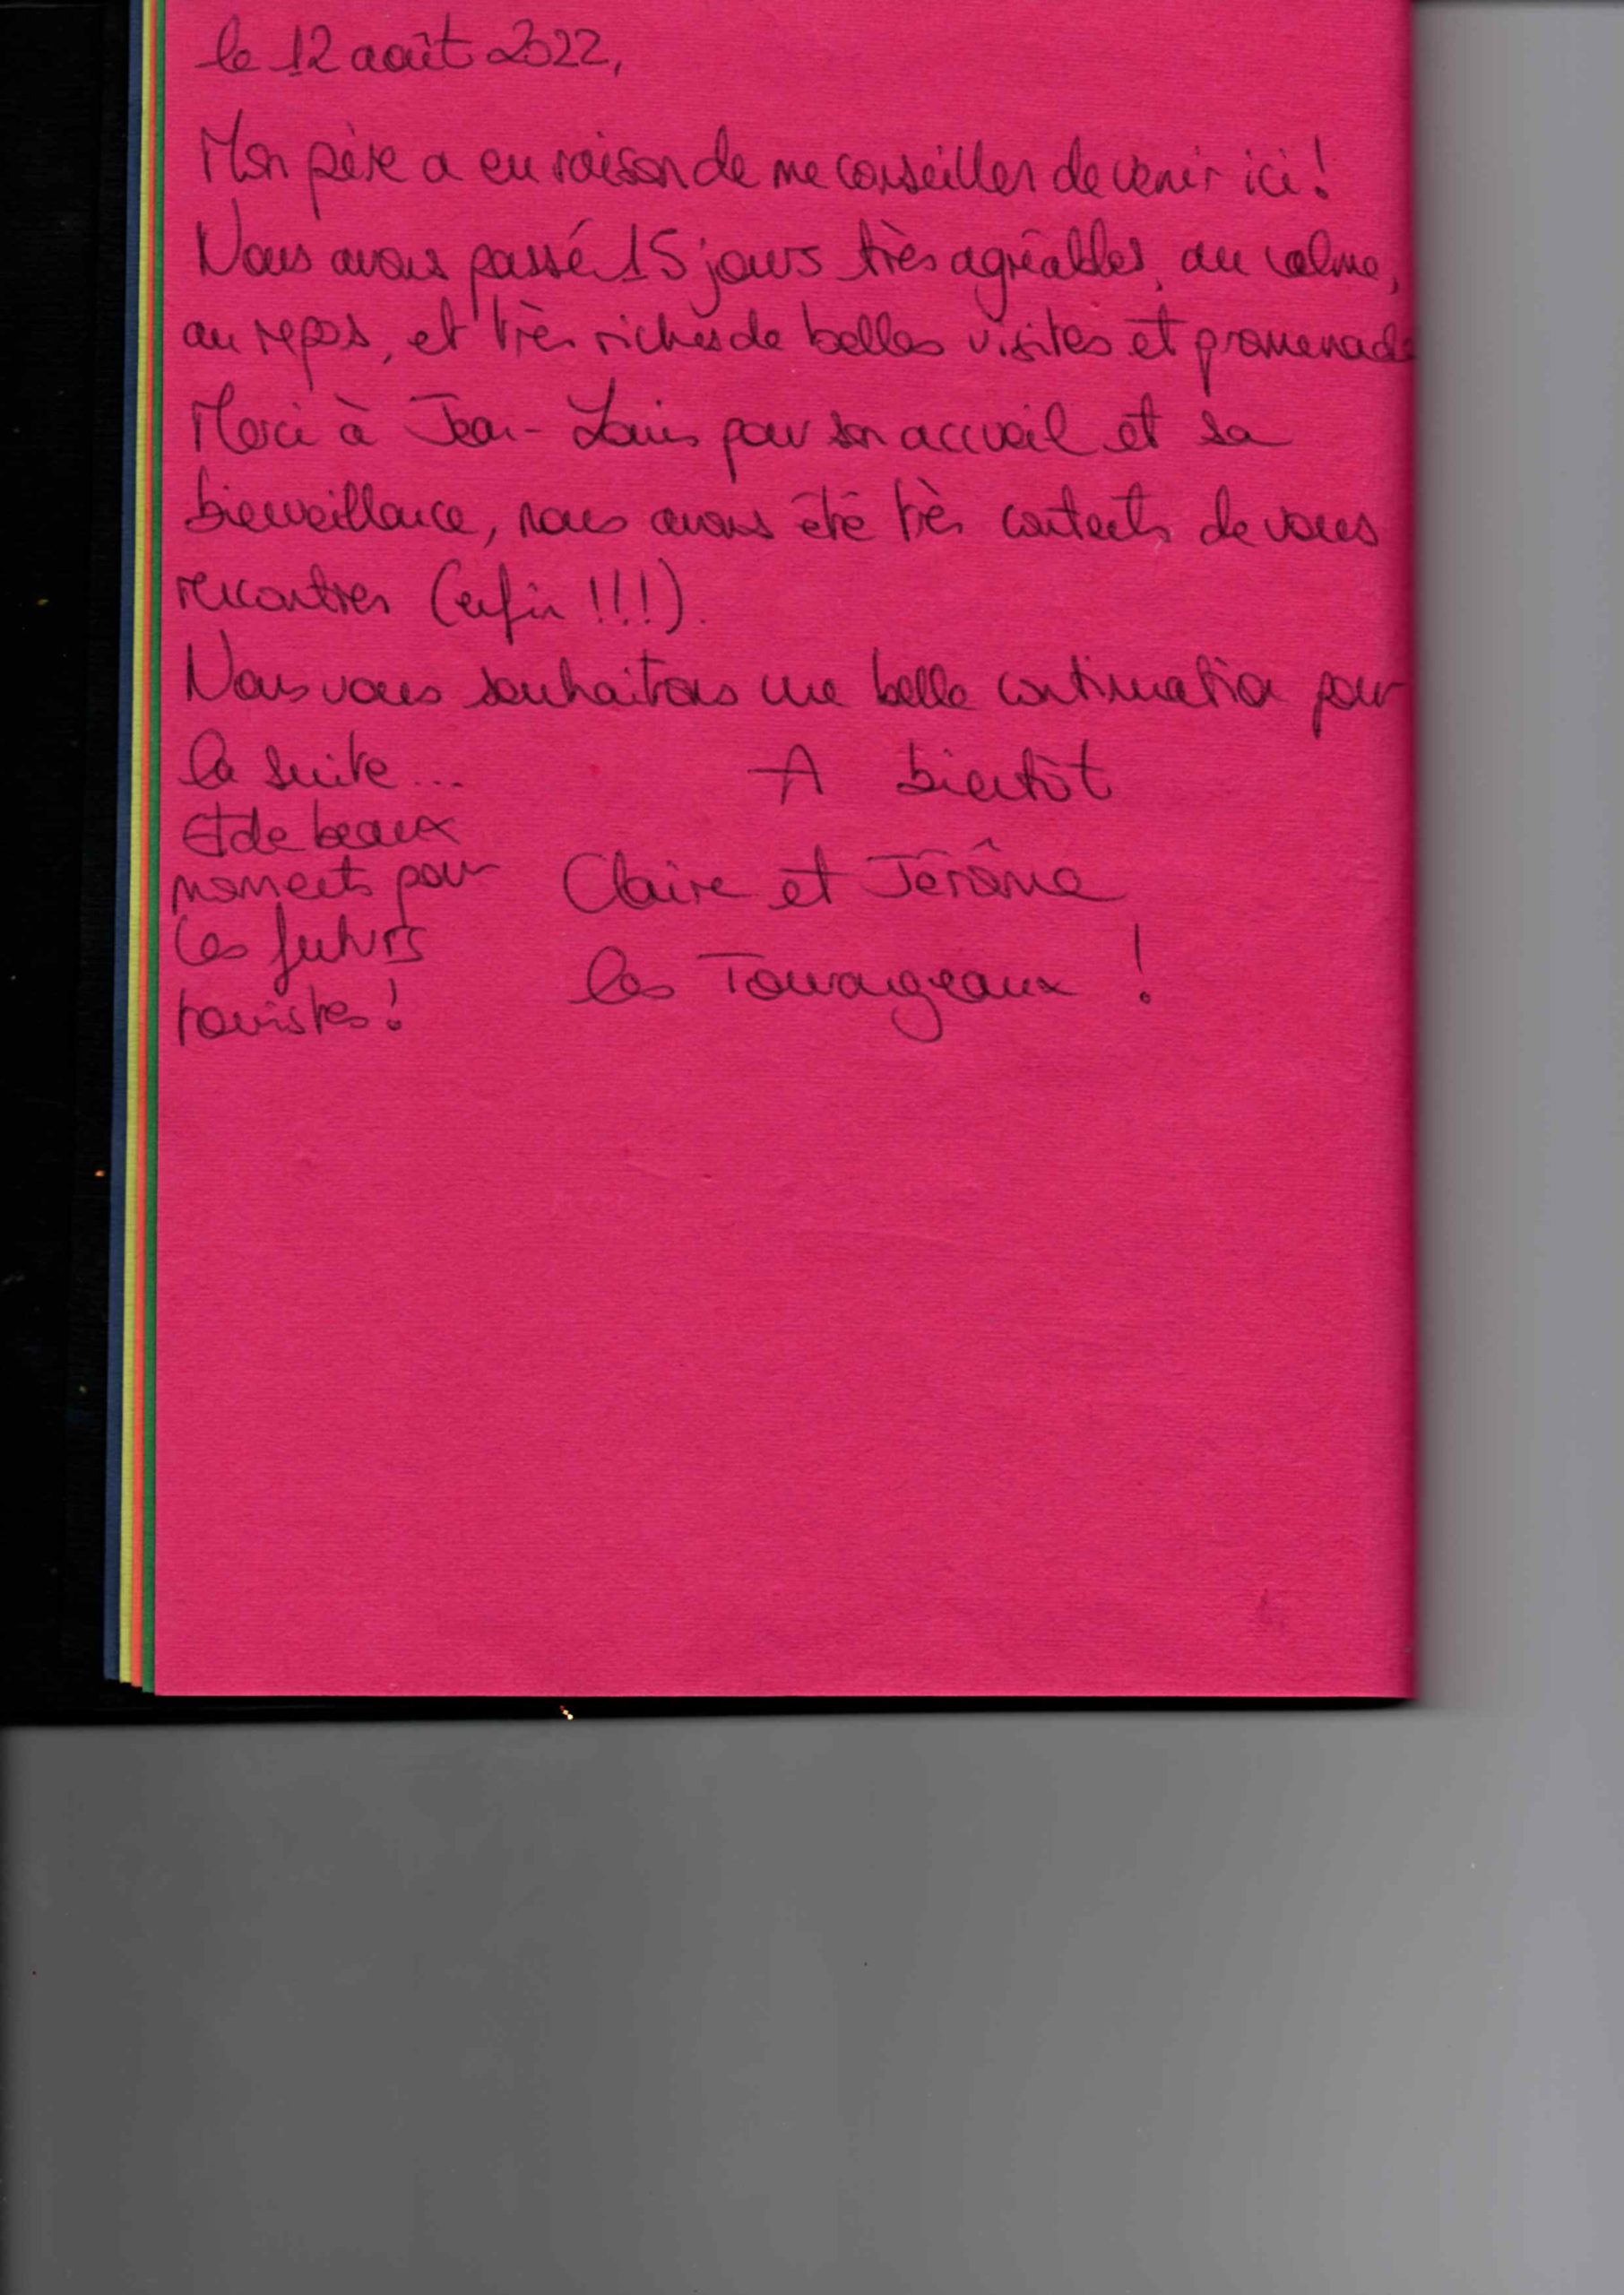 le 12 août 2022,
Mon père a eu raison de me conseiller de venir ici !
Nous avons passé 15 jours très agréables, au calme,
au repos, et très riches de belles visites et promenade
Merci à Jean-Louis pour son accueil et sa
bienveillance, nous avons été très contents de vous
rencontrer (enfin !!!).
Nous vous souhaitons une belle continuation pour
la suite...
Et de beaux
moments pour
les futurs
touristes !
A bientôt
Claire et Jérôme
les Tourangeaux !